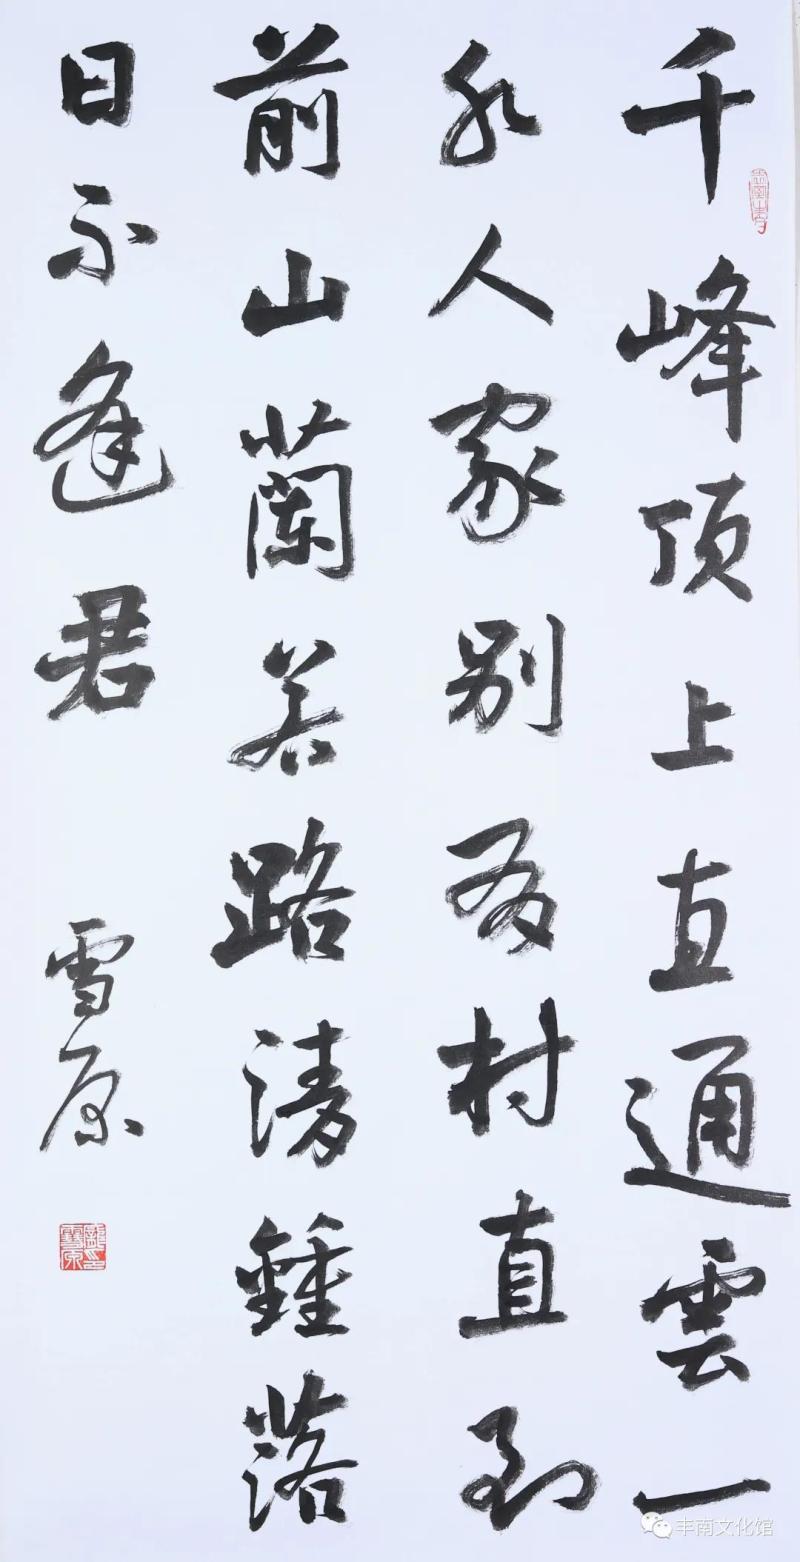 千峰顶上直通雲一
水人家别有村直到
前山蘭若路清鍾落
日不逢君 雪原
丰南文化馆